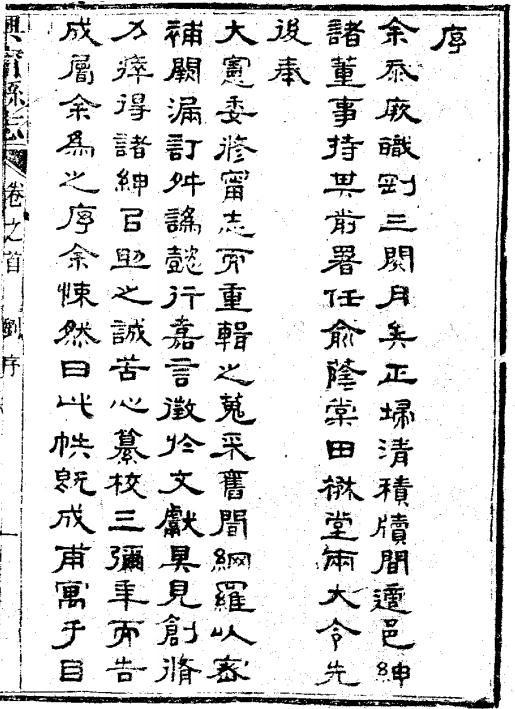 序
余忝厥職到三閱月矣正埽清積牘間適邑紳
諸董事持其前署任俞蔭棠田楙堂兩大令先
後奉
大憲委修甯志而重輯之蒐采舊聞網羅以密
補闕漏訂舛譌懿行嘉言徵於文獻具見創脩
力瘁得諸紳㠯助之誠苦心纂校三彌年而告
成屬余為之序余悚然曰此帙既成甫寓于目
興甯縣志 卷之首 序 一